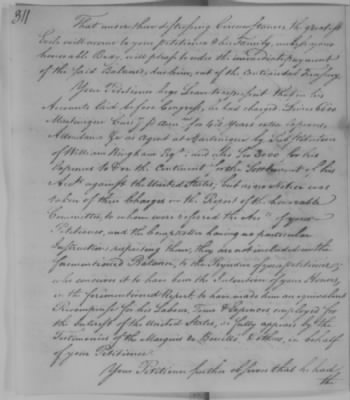 311
That under these distressing Circumstances the greatest
Evils will accrue to your petitioner & his Family, unless your
honorable Body, will please to order the immediate payment
of the said Balance, due him, out of the Continental Treasury.
Your Petitioner begs Leave to represent that in his
Accounts laid before Congress, he had charged Livres 6600
Martinique Curr.y for 4½ Years extra Expences
Attendance &c as Agent at Martinique by the
of William Bingham Esq.r, and also for his
Expences to & on the Continent, in the Settlement of his
Acc.ts against the United States, but as no Notice was
taken of these Charges in the Report of the honorable
Committee, to whom were referred the Acc.ts of your
Petitioner, and the Comptroller having no particular
Instructions respecting them, they are not included in the
forementioned Balance, to the of your petitioner
who conceives it to have been the Intention of your Honors,
in the forementioned Report, to have made him an equivalent
Recompence for his Labour, Time & Expences employed for
the Interest of the United States, as fully appears by the
Testimonies of the Marquis de Bouillé & others, in behalf
of your Petitioner
Your Petitioner further observes that he had
the